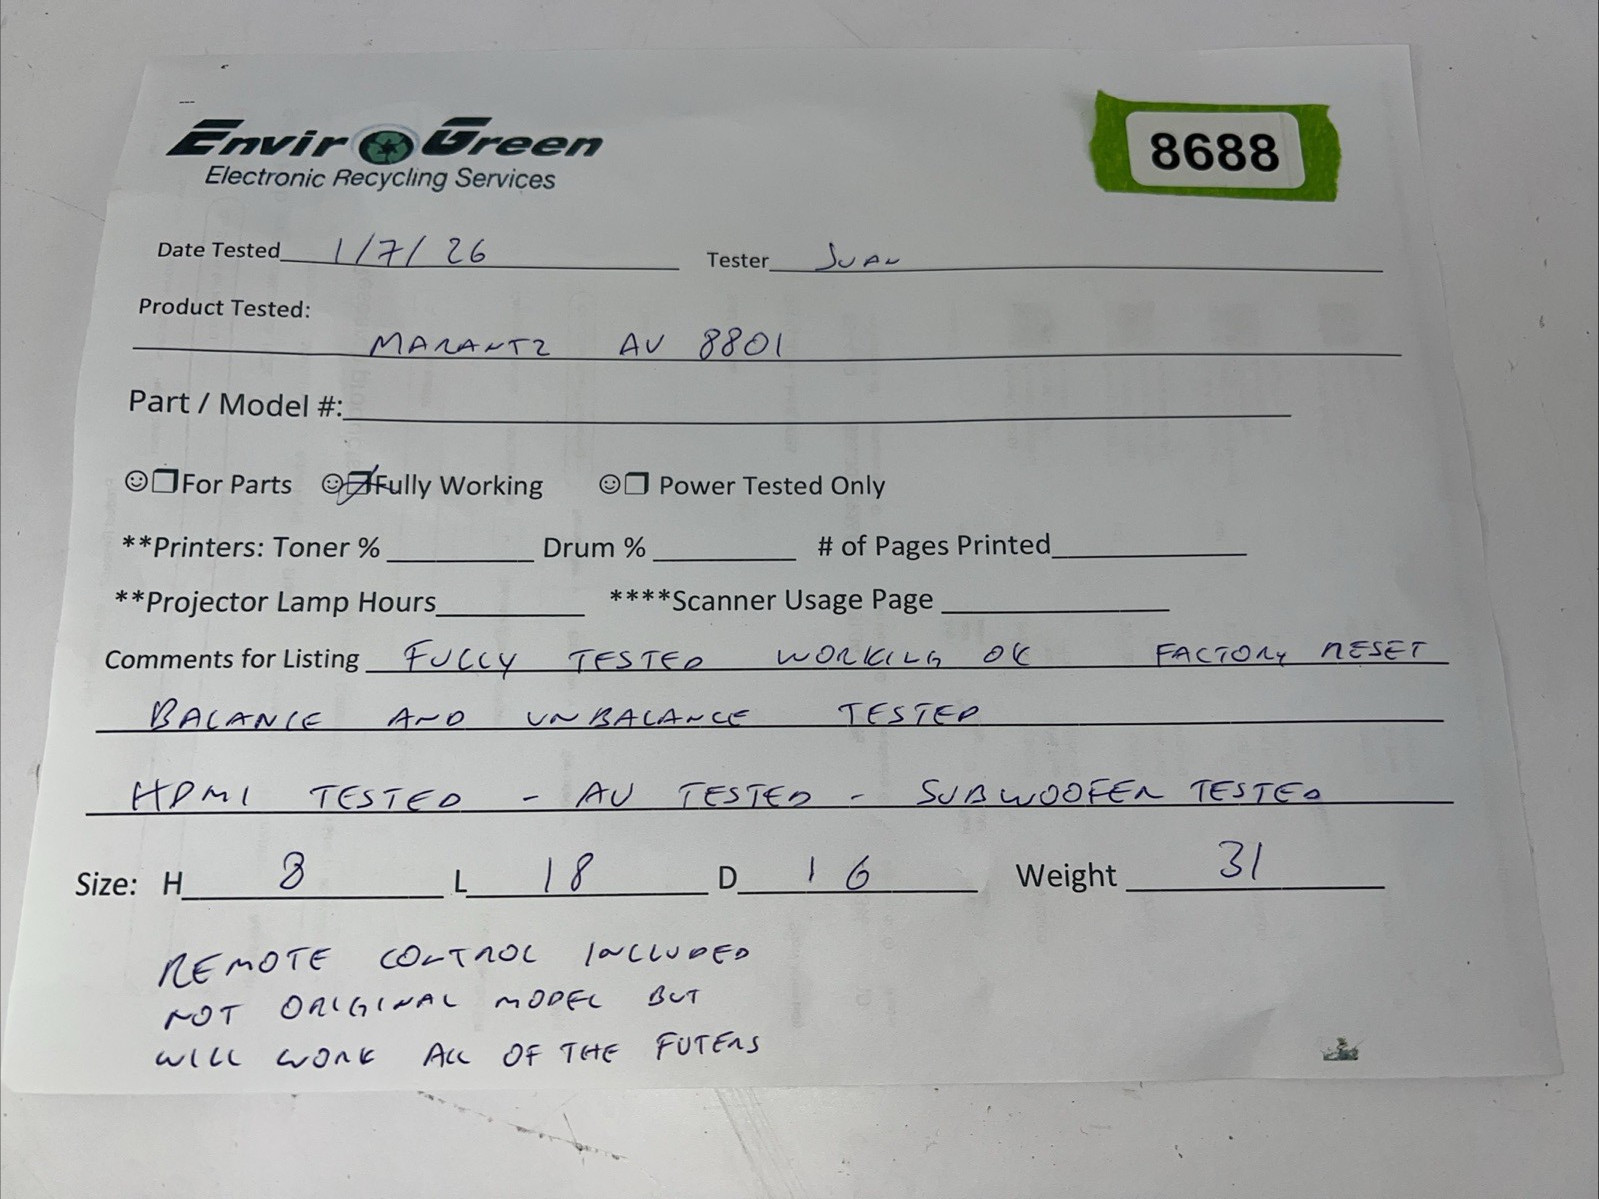 EnviroGreen
Electronic Recycling Services
8688
Date Tested 1/7/26 Tester JUAN
Product Tested:
MARANTZ AV 8801
Part / Model #:
☺❒For Parts ☺❒Fully Working ☺❒ Power Tested Only
**Printers: Toner % Drum % # of Pages Printed
**Projector Lamp Hours ****Scanner Usage Page
Comments for Listing FULLY TESTED WORKING OK FACTORY RESET
BALANCE AND UNBALANCE TESTED
HDMI TESTED - AV TESTED - SUBWOOFER TESTED
Size: H 8 L 18 D 16 Weight 31
REMOTE CONTROL INCLUDED
NOT ORIGINAL MODEL BUT
WILL WORK ALL OF THE FUTERS